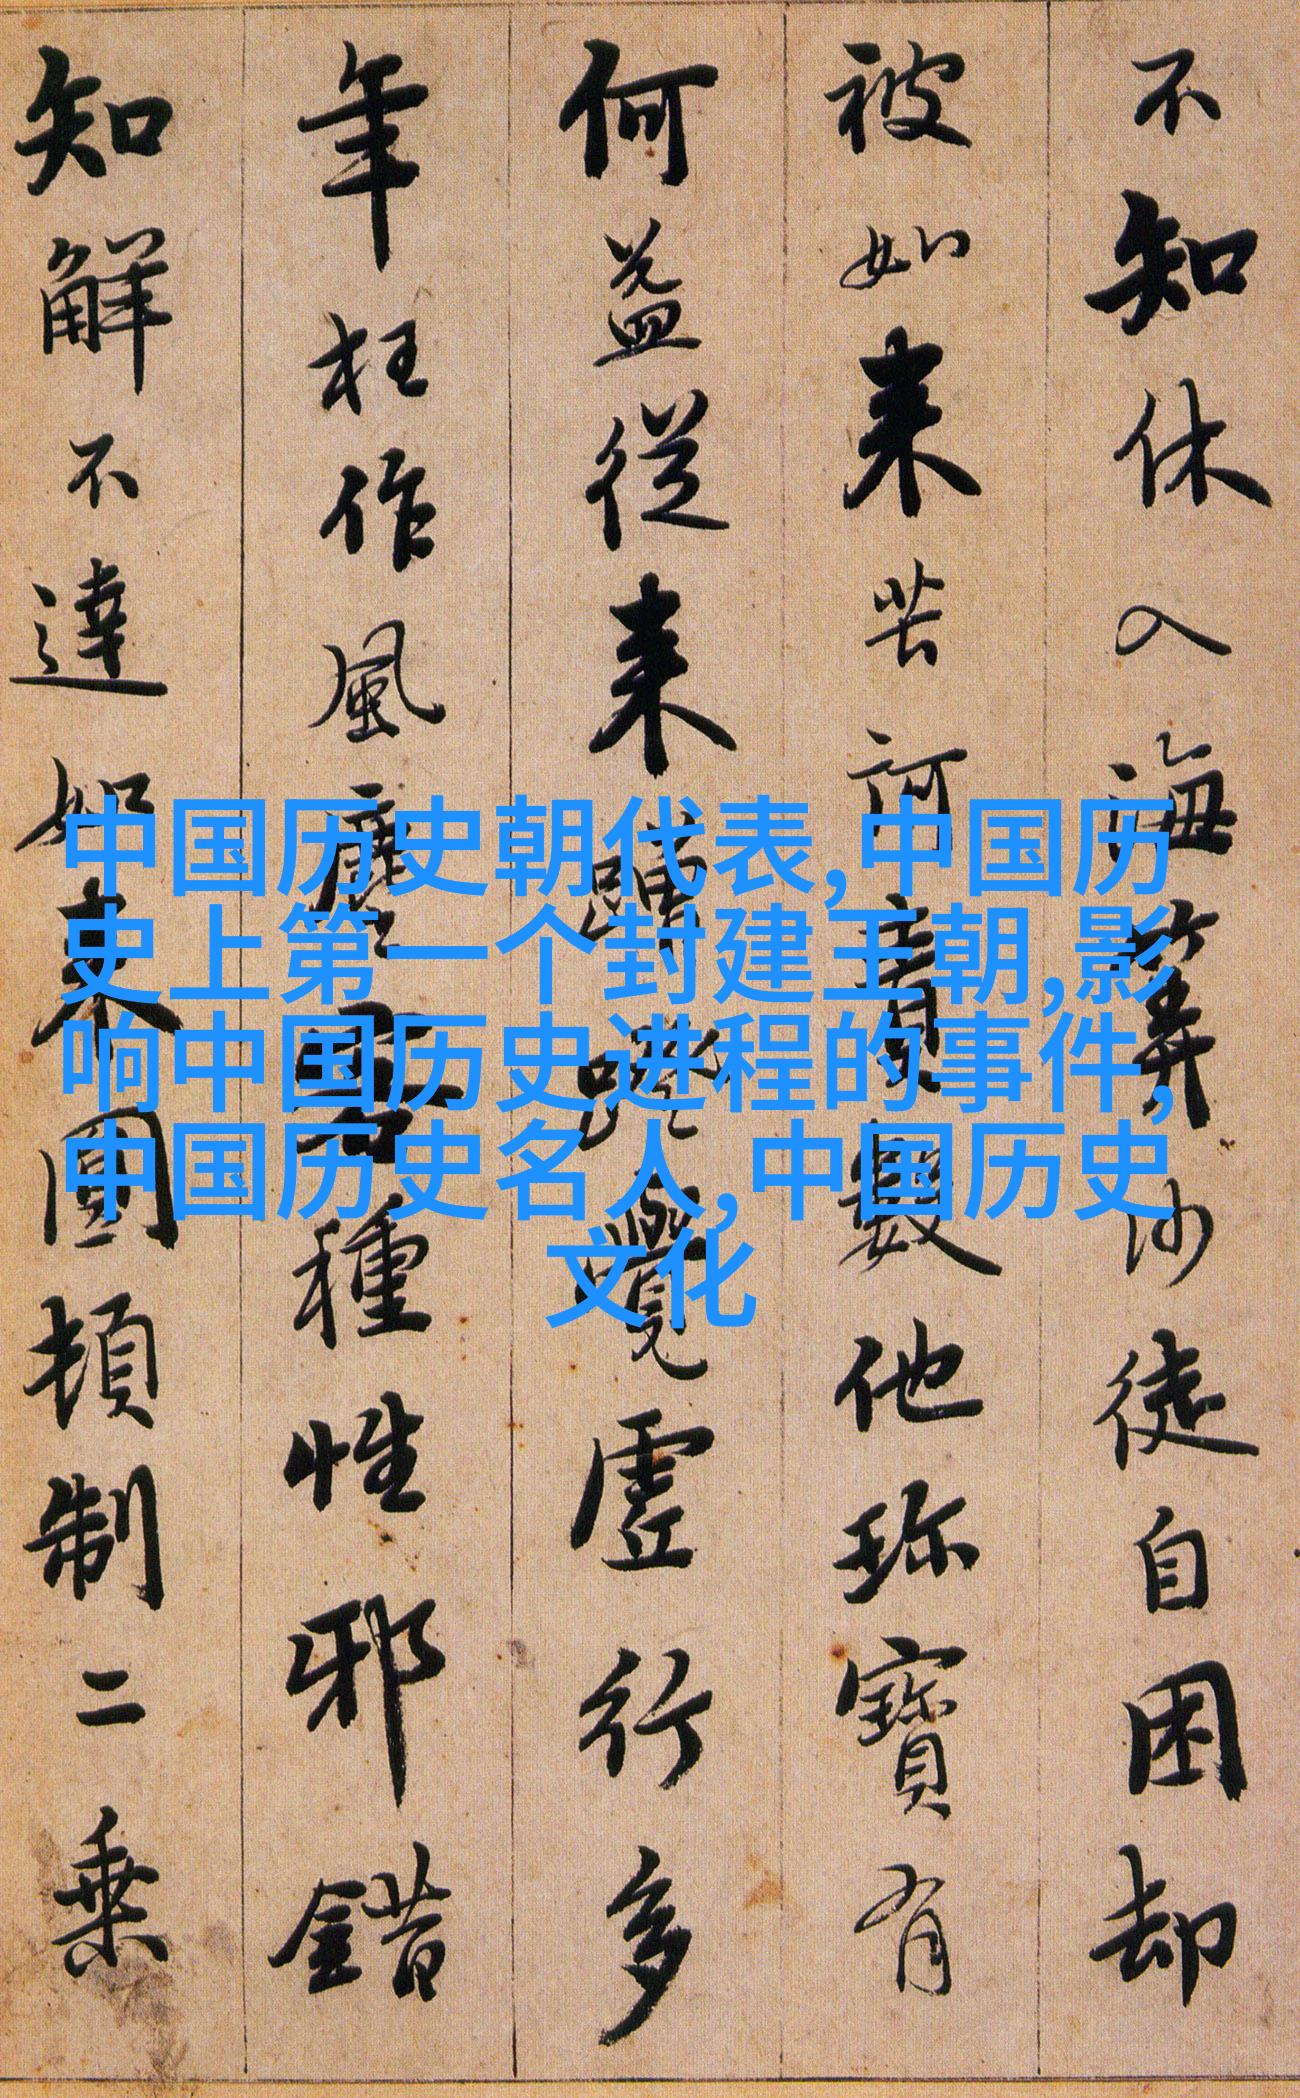 不知休入海算沙徒自困却
被如来苦訶責數他珍寶有
何益從来蹭蹬覺虛行多
年枉作風塵客種性邪錯
知解不達如来圓頓制二乘
中国历史朝代表,中国历
史上第一个封建王朝,影
响中国历史进程的事件,
中国历史名人,中国历史
文化